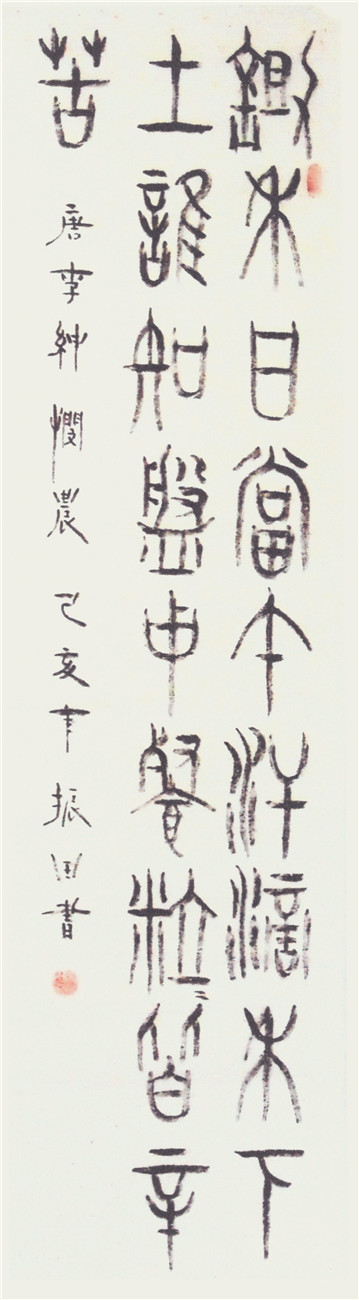 鋤禾日當午汗滴禾下
土誰知盤中餐粒〻皆辛
苦
唐李紳憫農 己亥年振田書